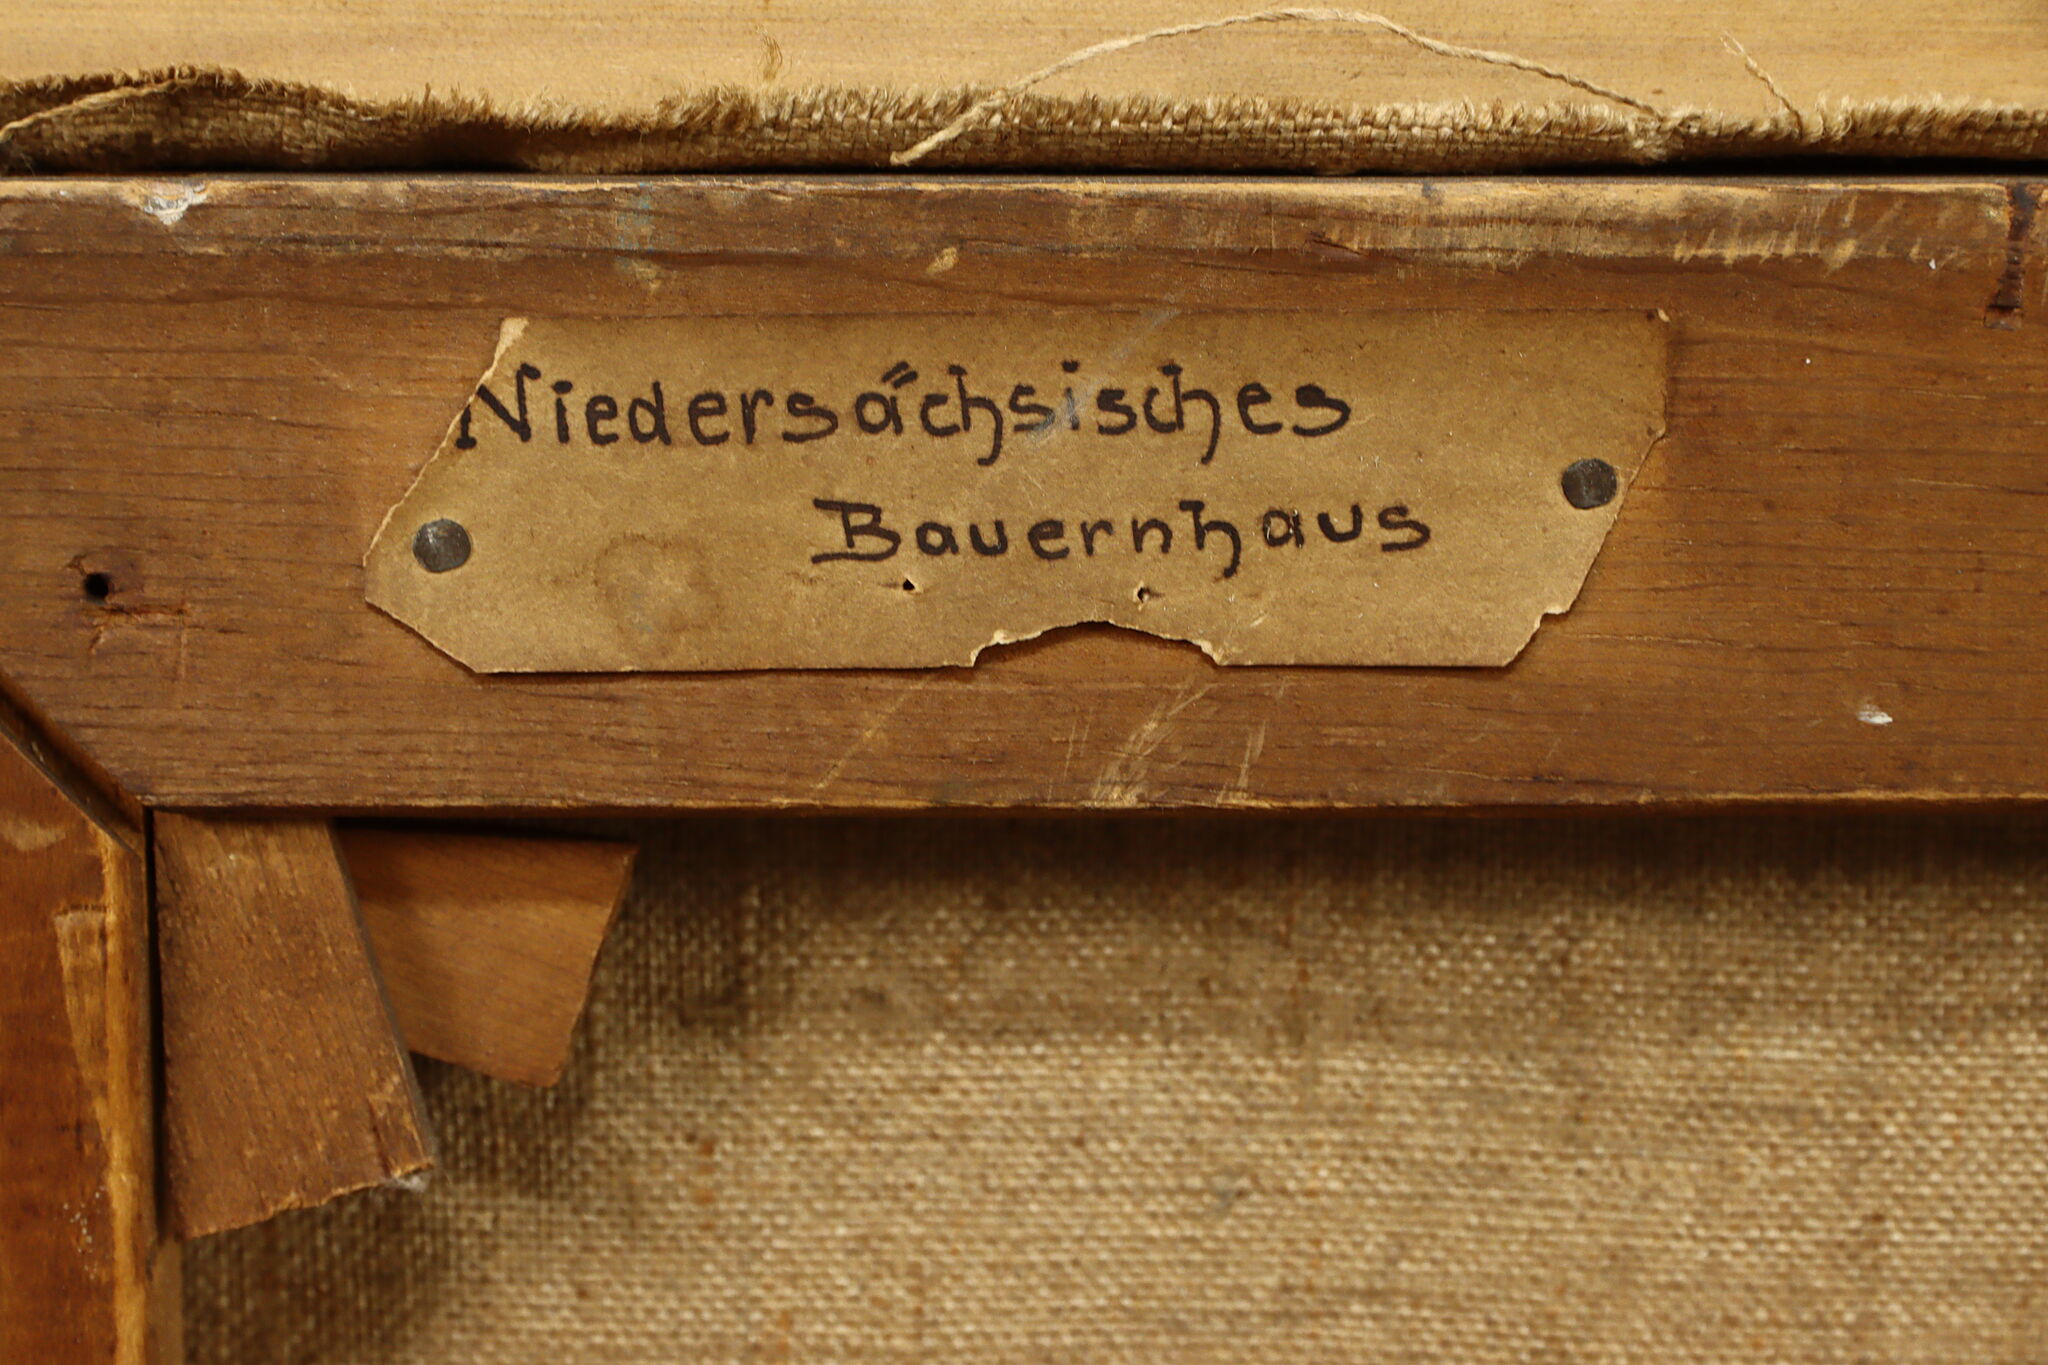 Niedersächsisches
Bauernhaus